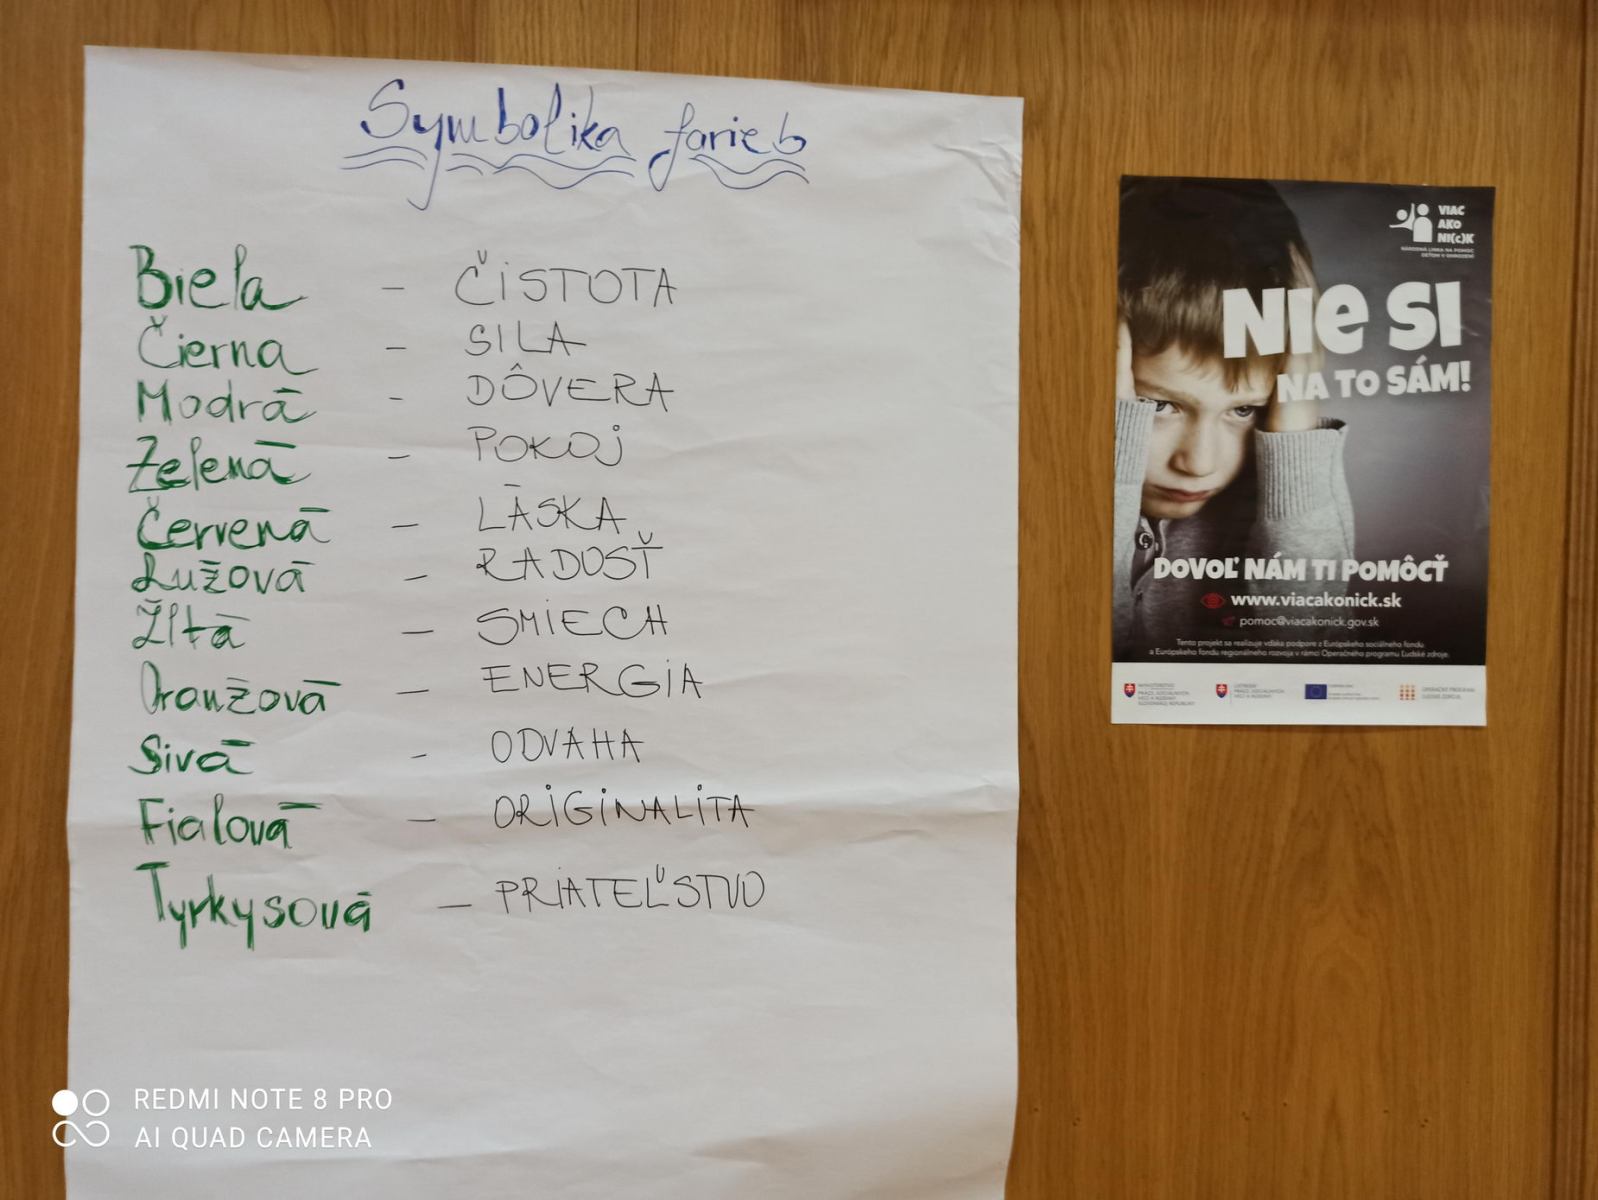 Symbolika farieb
Biela - ČISTOTA
Čierna - SILA
Modrá - DÔVERA
Zelená - POKOJ
Červená - LÁSKA
Ružová - RADOSŤ
Žltá - SMIECH
Oranžová - ENERGIA
Sivá - ODVAHA
Fialová - ORIGINALITA
Tyrkysová - PRIATEĽSTVO
VIAC
AKO
NI(c)K
NÁRODNÁ LINKA NA POMOC
DEŤOM V OHROZENÍ
NIE SI
NA TO SÁM!
DOVOĽ NÁM TI POMÔCŤ
www.viacakonick.sk
pomoc@viacakonick.gov.sk
Tento projekt sa realizuje vďaka podpore z Európskeho sociálneho fondu
a Európskeho fondu regionálneho rozvoja v rámci Operačného programu Ľudské zdroje.
MINISTERSTVO
PRÁCE, SOCIÁLNYCH
VECÍ A RODINY
SLOVENSKEJ REPUBLIKY
ÚSTREDIE
PRÁCE, SOCIÁLNYCH
VECÍ A RODINY
OPERAČNÝ PROGRAM
ĽUDSKÉ ZDROJE
REDMI NOTE 8 PRO
AI QUAD CAMERA